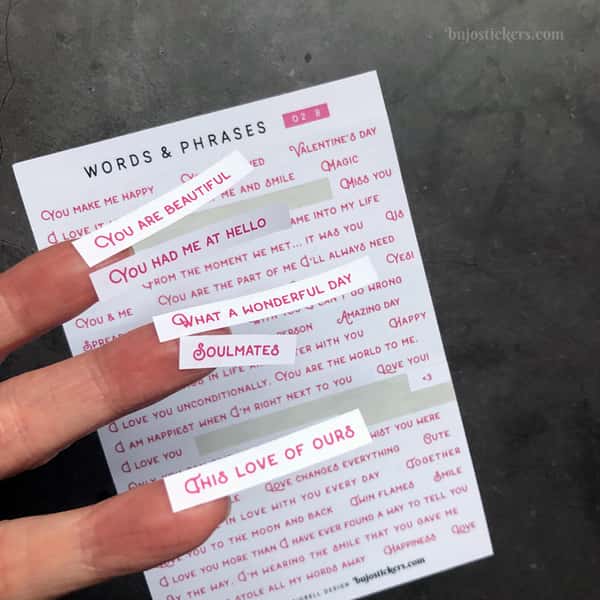 bujostickers.com
WORDS & PHRASES 02 B
VALENTINE'S DAY
YOU MAKE ME HAPPY
MAGIC
I LOVE IT
ME AND SMILE
MISS YOU
YOU ARE BEAUTIFUL
AME INTO MY LIFE
YOU HAD ME AT HELLO
FROM THE MOMENT WE MET... IT WAS YOU
US
YOU & ME
YOU ARE THE PART OF ME I'LL ALWAYS NEED
YES!
WHAT A WONDERFUL DAY
GO WRONG
AMAZING DAY
HAPPY
SOULMATES
IN LIFE
WITH YOU
I LOVE YOU UNCONDITIONALLY. YOU ARE THE WORLD TO ME.
I AM HAPPIEST WHEN I'M RIGHT NEXT TO YOU
LOVE YOU!
I LOVE YOU
<3
THIS LOVE OF OURS
WIST YOU WERE
LOVE CHANGES EVERYTHING
CUTE
IN LOVE WITH YOU EVERY DAY
TWIN FLAMES
TOGETHER
YOU TO THE MOON AND BACK
SMILE
I LOVE YOU MORE THAN I HAVE EVER FOUND A WAY TO TELL YOU
BY THE WAY, I'M WEARING THE SMILE THAT YOU GAVE ME
STOLE ALL MY WORDS AWAY
HAPPINESS
LOVE
DESIGN bujostickers.com